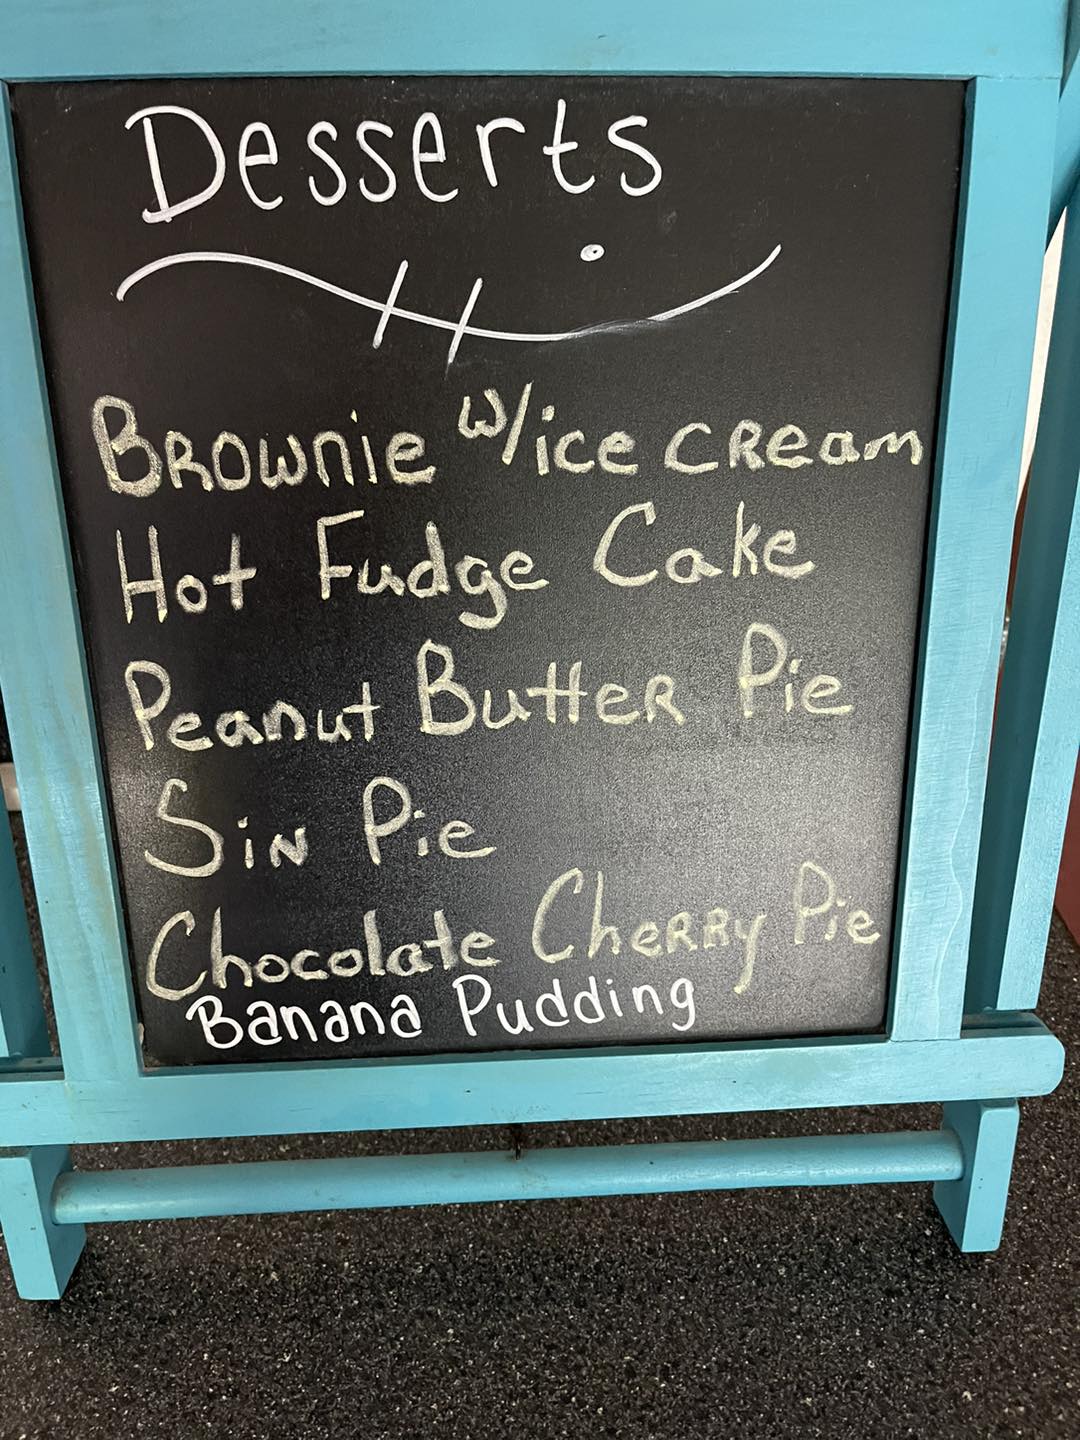 Desserts
Brownie w/ice cream
Hot Fudge Cake
Peanut Butter Pie
Sin Pie
Chocolate Cherry Pie
Banana Pudding